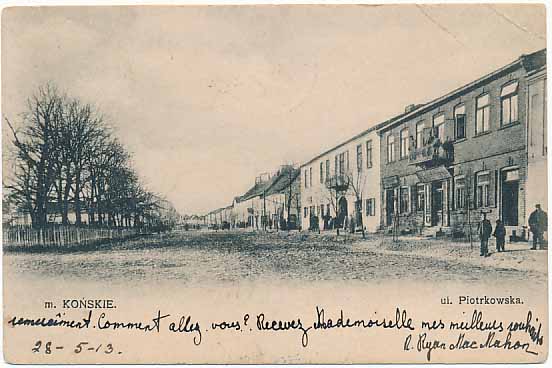 m. KOŃSKIE.
ul. Piotrkowska.
remerciment. Comment allez vous? Recevez Mademoiselle mes meilleurs souhaits
28-5-13.
R. Ryan Mac Mahon